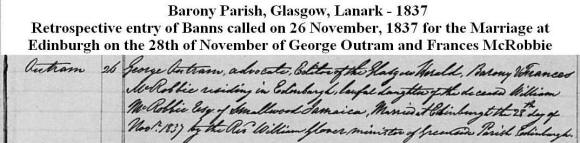 Barony Parish, Glasgow, Lanark - 1837
Retrospective entry of Banns called on 26 November, 1837 for the Marriage at
Edinburgh on the 28th of November of George Outram and Frances McRobbie
Outram 26 George Outram, advocate, Editor of the Glasgow Herald, Barony & Frances
McRobbie residing in Edinburgh, lawful daughter of the deceased William
McRobbie Esqr of Smallwood Jamaica, Married at Edinburgh the 28th day of
Novr. 1837 by the Revd William Glover minister of Greenside Parish Edinburgh.